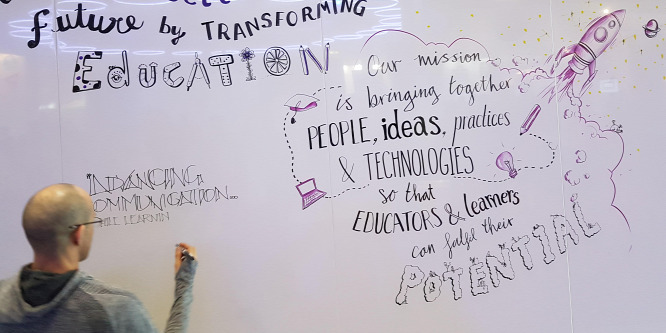 future by TRANSFORMING
EducATION
Our mission
is bringing together
PEOPLE, ideas, practices
& TECHNOLOGIES
so that
EDUCATORS & learners
can fulfil their
POTENTIAL
COMMUNICATION